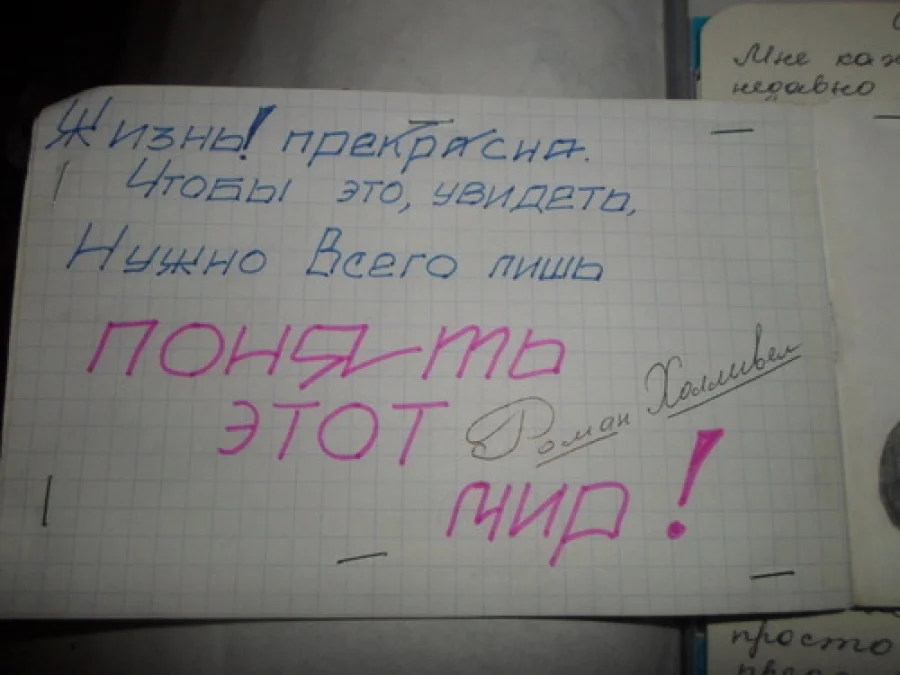 Жизнь! прекрасна.
Чтобы это, увидеть,
Нужно Всего лишь
понять
этот
Роман Холливел
мир!
Мне каж
недавно
просто